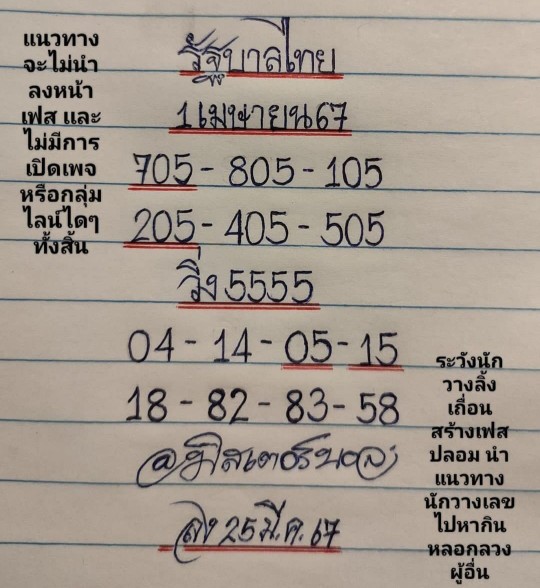 แนวทาง
จะไม่นำ
ลงหน้า
เฟส และ
ไม่มีการ
เปิดเพจ
หรือกลุ่ม
ไลน์ใดๆ
ทั้งสิ้น
รัฐบาลไทย
1 เมษายน 67
705 - 805 - 105
205 - 405 - 505
วิ่ง 5555
04 - 14 - 05 - 15
18 - 82 - 83 - 58
ลง 25 มี.ค. 67
ระวังนัก
วางลิ้ง
เถื่อน
สร้างเฟส
ปลอม นำ
แนวทาง
นักวางเลข
ไปหากิน
หลอกลวง
ผู้อื่น